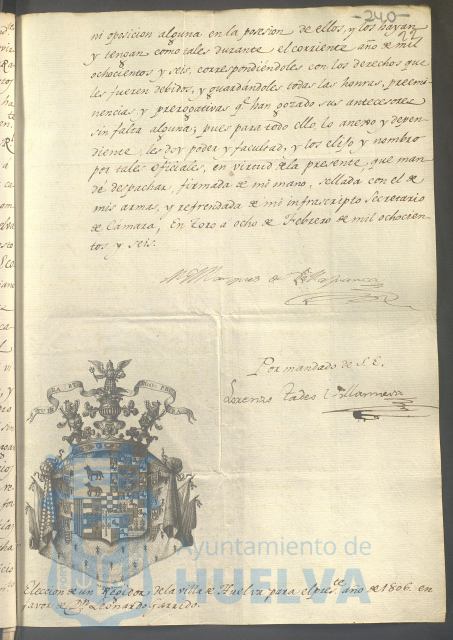 -240-
ni oposicion alguna en la posesion de ellos, y los hayan
y tengan como tales durante el corriente año de mil
ochocientos y seis, correspondiendoles con los derechos que
les fueren debidos, y guardandoles todas las honras, preemi-
nencias, y prerogativas q.e han gozado sus antecesores
sin falta alguna; pues para todo ello, lo anexo y depen-
diente, les doy poder y facultad, y los elijo y nombro
por tales oficiales, en virtud de la presente, que man-
dé despachar, firmada de mi mano, sellada con el de
mis armas, y refrendada de mi infrascripto Secretario
de Camara; En Toro a ocho de Febrero de mil ochocien-
tos y seis.
El Marques de Villafranca
Por mandado de S. E.
Lorenzo Tadeo Villanueva
Ayuntamiento de
HUELVA
Eleccion de un Regidor de la villa de Huelva para el pres.te año de 1806. en
favor de D.n Leonardo Garrido.